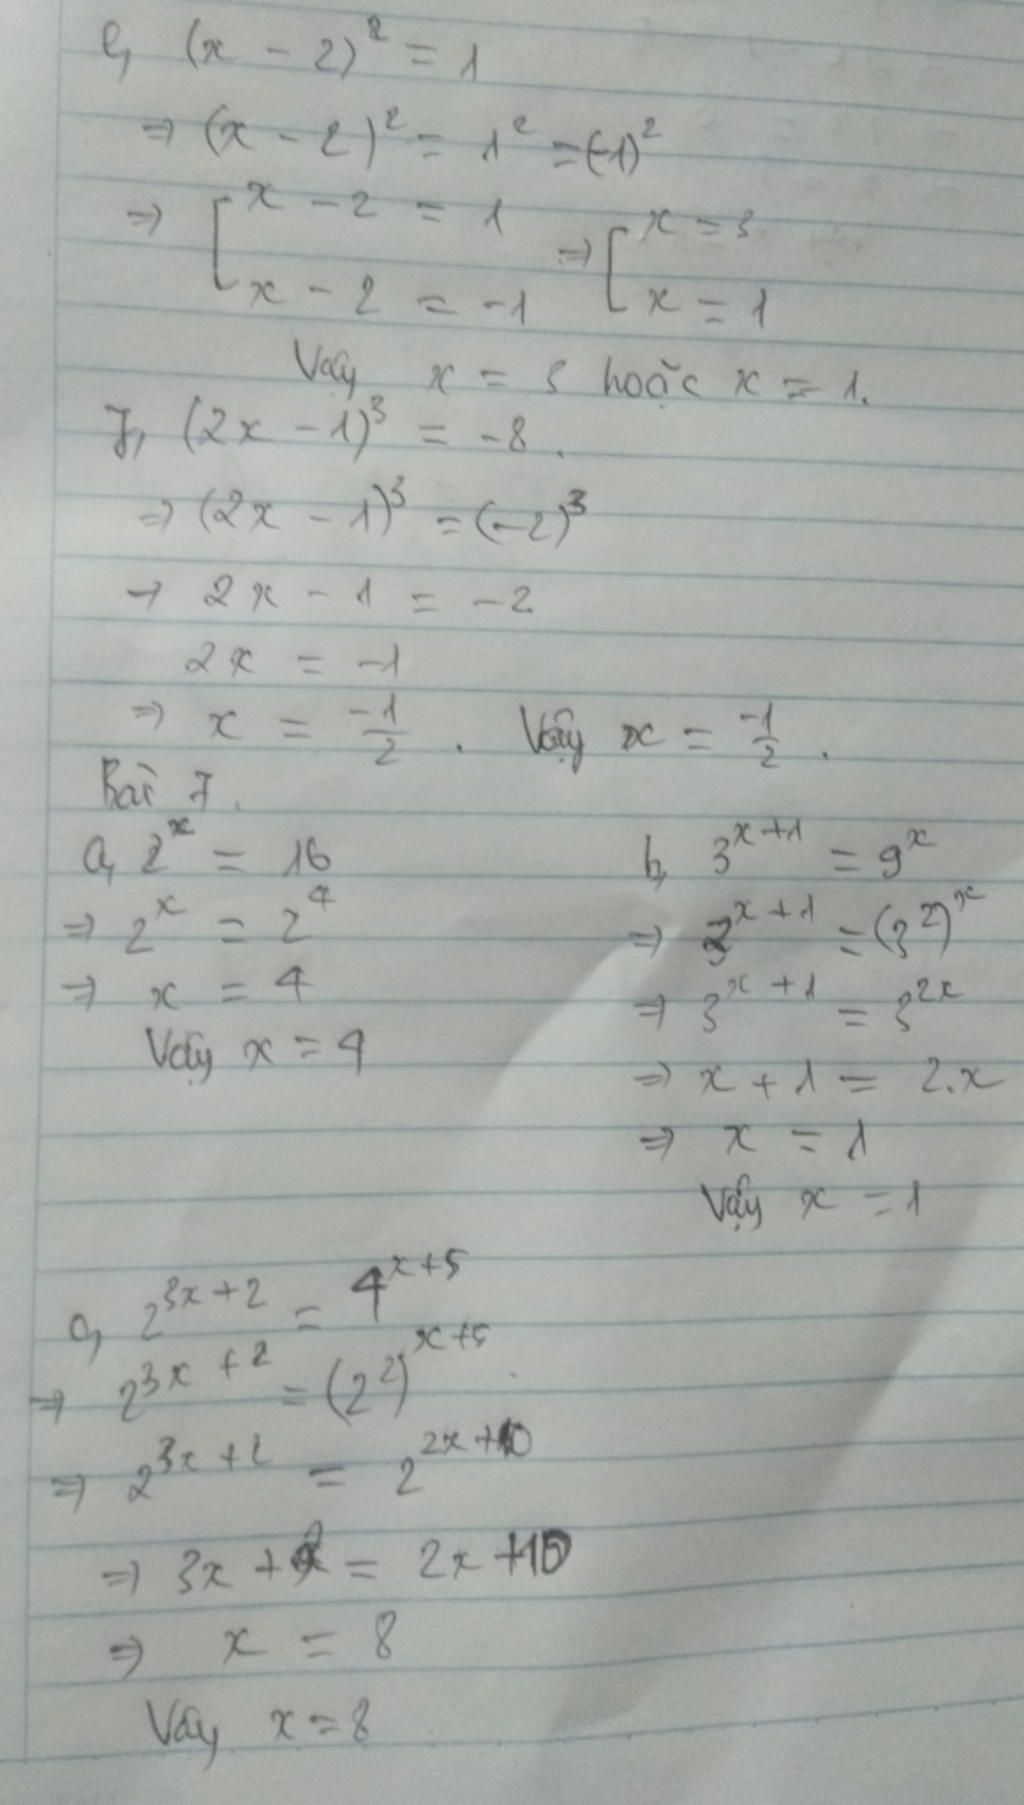 e, (x - 2)² = 1
⇒ (x - 2)² = 1² = (-1)²
⇒ [ x - 2 = 1 ⇒ [ x = 3
x - 2 = -1 x = 1
Vậy x = 3 hoặc x = 1.
f, (2x - 1)³ = -8.
⇒ (2x - 1)³ = (-2)³
→ 2x - 1 = -2
2x = -1
⇒ x = -1/2. Vậy x = -1/2.
Bài 7.
a, 2^x = 16
⇒ 2^x = 2^4
⇒ x = 4
Vậy x = 4
b, 3^(x+1) = 9^x
⇒ 3^(x+1) = (3²)^x
⇒ 3^(x+1) = 3^(2x)
⇒ x + 1 = 2.x
⇒ x = 1
Vậy x = 1
c, 2^(3x+2) = 4^(x+5)
⇒ 2^(3x+2) = (2²)^(x+5)
⇒ 2^(3x+2) = 2^(2x+10)
⇒ 3x + 2 = 2x + 10
⇒ x = 8
Vậy x = 8